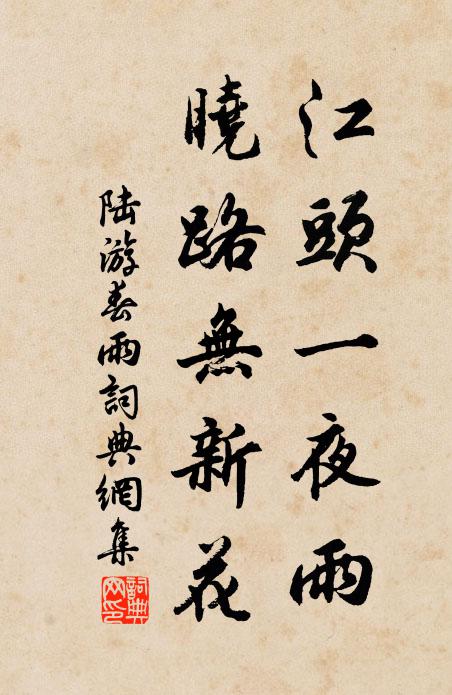 江頭一夜雨
曉路無新花
陸游春雨詞典網集
詞典網印